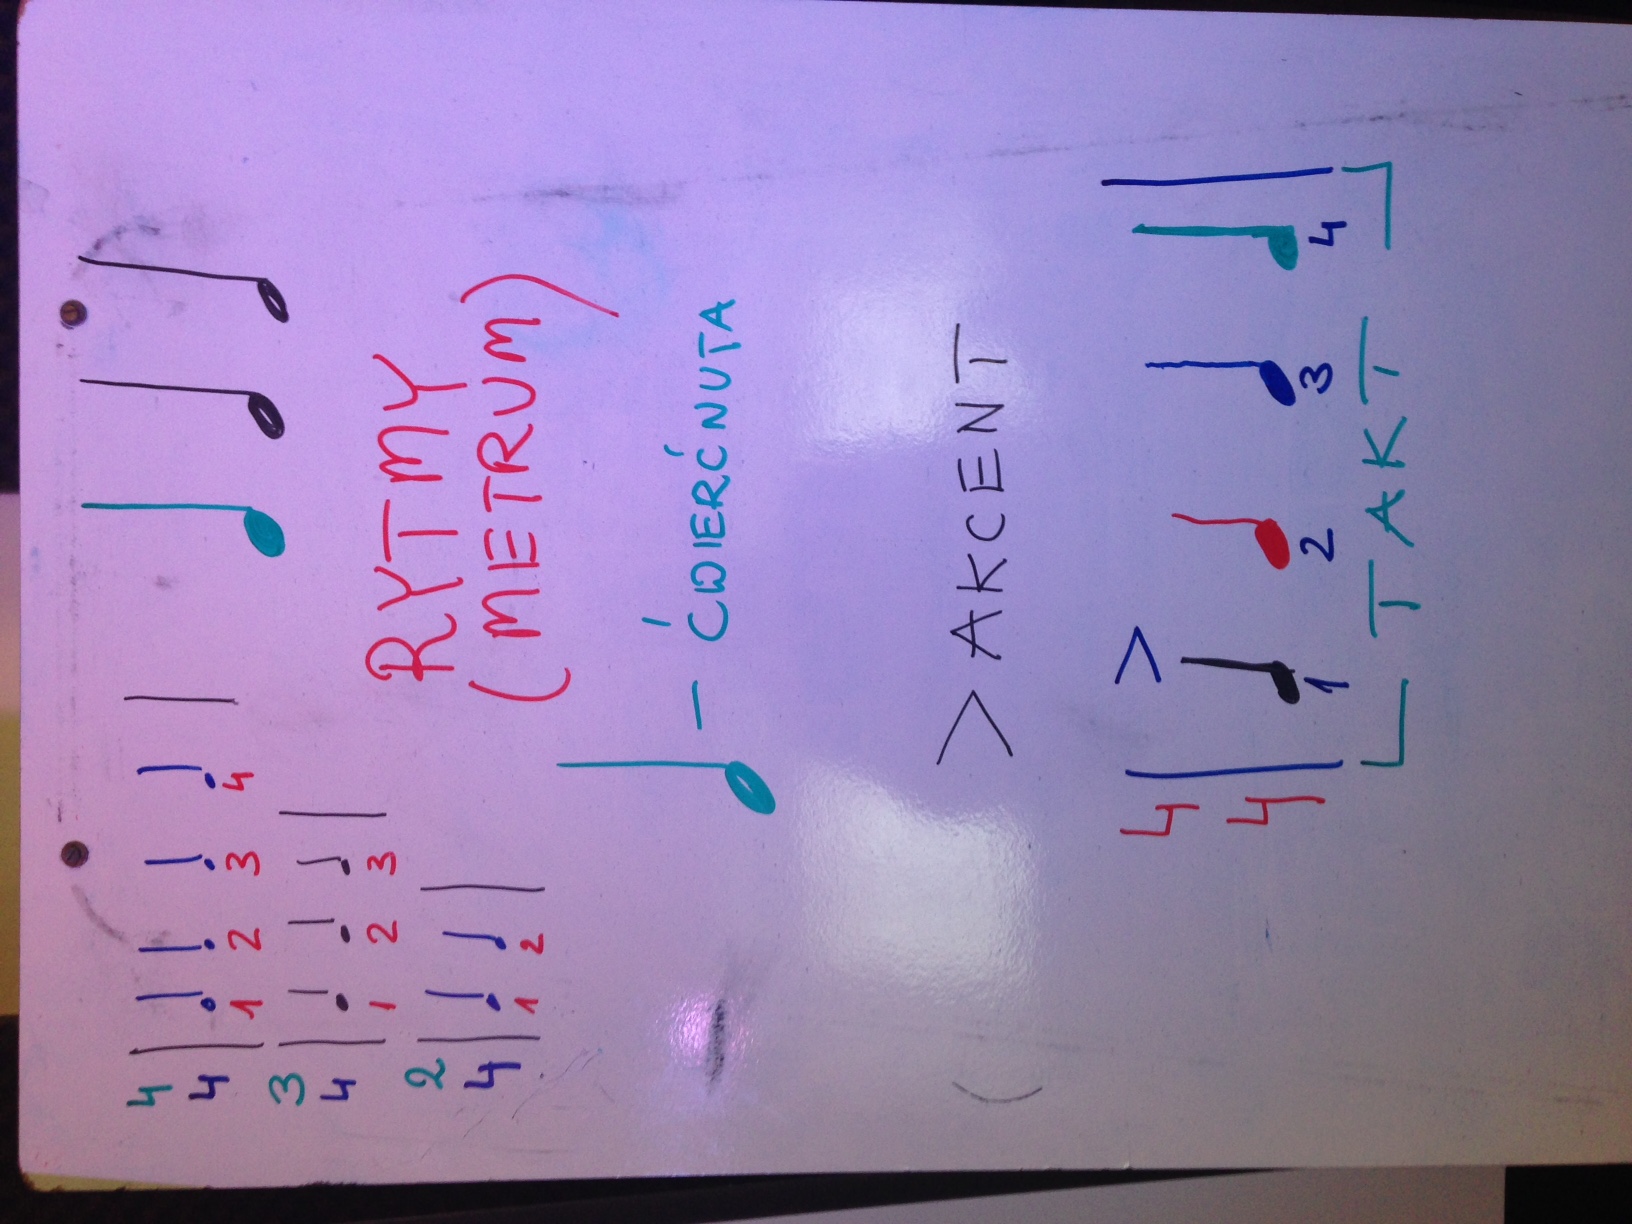 4 4 1 2 3 4
3 4 1 2 3
2 4 1 2
RYTMY
(METRUM)
– ĆWIERĆNUTA
> AKCENT
>
4 4
1 2 3 4
TAKT